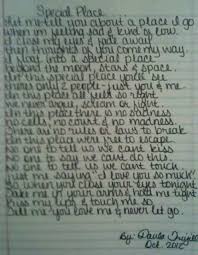 Special Place
Let me tell you about a place I go
when im feeling sad & kind of low.
I close my eyes & fade away
then thoughts of you come my way.
I slip into a special place
beyond the moon, stars & space
In this special place you'll see
theres only 2 people - just you & me.
In this place all feels so right
we never argue, scream or fight.
In this place there is no sadness
no cells, no count & no madness.
There are no rules or laws to break
In this place were free to escape.
No one to tell us we cant kiss
No one to say we cant do this.
No one to tell us we cant touch
just me saying "I love you so much".
So when you close your eyes tonight
Take me in your arms, hold me tight
Kiss my lips & touch me so
Tell me you love me & never let go.
By: Paula
Oct. 2012